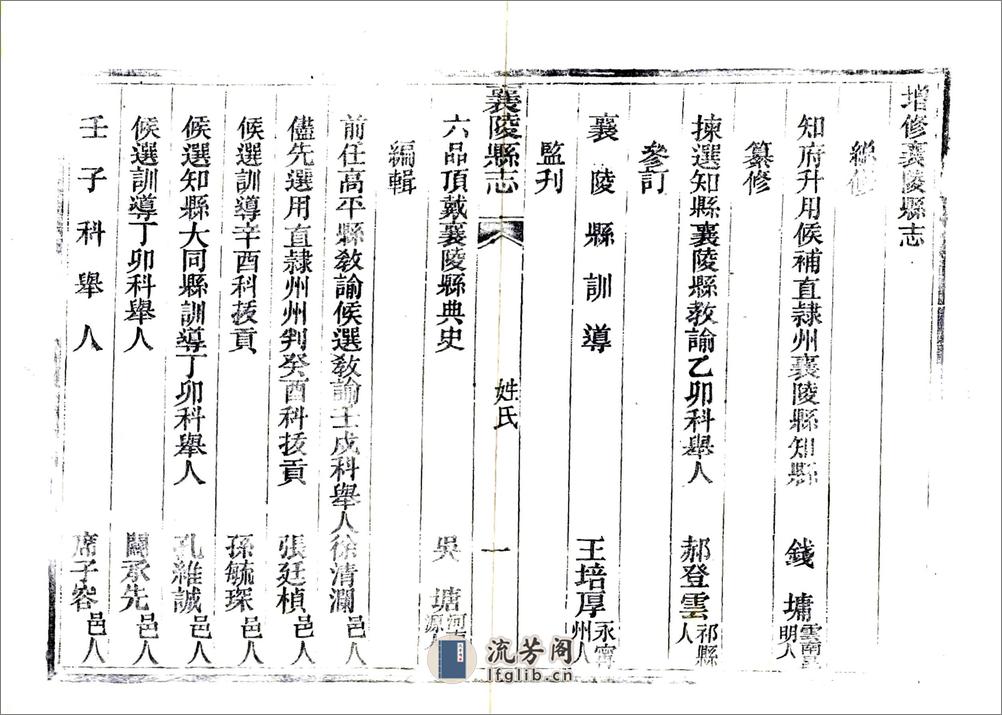 增修襄陵縣志
總修
知府升用候補直隸州襄陵縣知縣 錢墉 雲南昆明人
纂修
揀選知縣襄陵縣教諭乙卯科舉人 郝登雲 祁縣人
參訂
襄陵縣訓導 王培厚 永寧州人
監刊
六品頂戴襄陵縣典史 吳塘
襄陵縣志 姓氏 一
編輯
前任高平縣教諭候選教諭壬戌科舉人徐清瀾 邑人
儘先選用直隸州州判癸酉科拔貢 張廷楨 邑人
候選訓導辛酉科拔貢 孫毓琛 邑人
候選知縣大同縣訓導丁卯科舉人 孔維誠 邑人
候選訓導丁卯科舉人 關承先 邑人
壬子科舉人 席子容 邑人
流芳阁
lfglib.cn